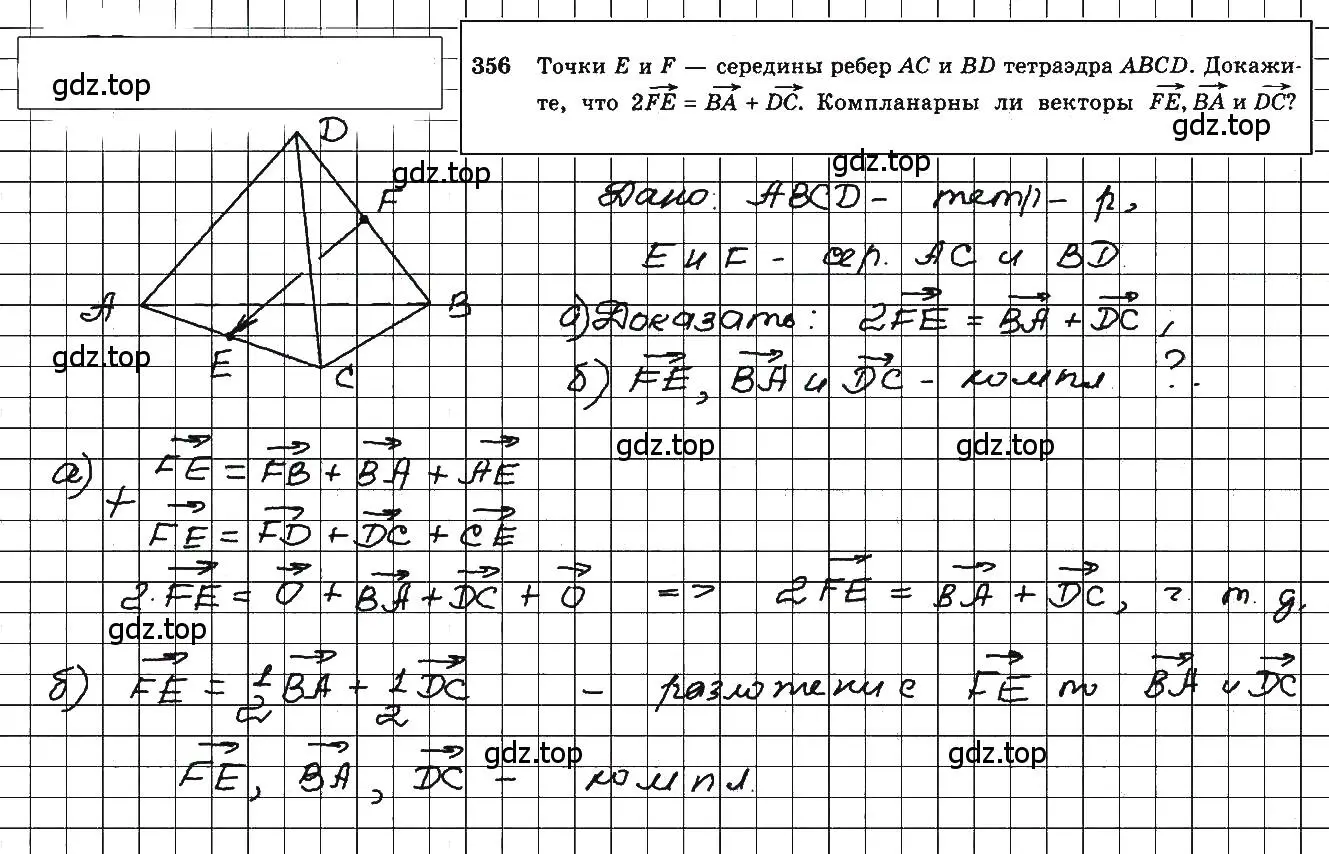 gdz.top
356 Точки E и F — середины ребер AC и BD тетраэдра ABCD. Докажи-
те, что 2FE⃗ = BA⃗ + DC⃗. Компланарны ли векторы FE⃗, BA⃗ и DC⃗?
gdz.top
gdz.top
gdz.top
D
F
A
B
E
C
gdz.top
Дано: ABCD - тетр-р,
E и F - сер. AC и BD.
а) Доказать: 2FE⃗ = BA⃗ + DC⃗,
б) FE⃗, BA⃗ и DC⃗ - компл. ?
gdz.top
gdz.top
а) FE⃗ = FB⃗ + BA⃗ + AE⃗
+
FE⃗ = FD⃗ + DC⃗ + CE⃗
2·FE⃗ = 0⃗ + BA⃗ + DC⃗ + 0⃗ => 2FE⃗ = BA⃗ + DC⃗, ч. т. д.
gdz.top
б) FE⃗ = 1/2 BA⃗ + 1/2 DC⃗ - разложение FE⃗ по BA⃗ и DC⃗
gdz.top
gdz.top
FE⃗, BA⃗, DC⃗ - компл.